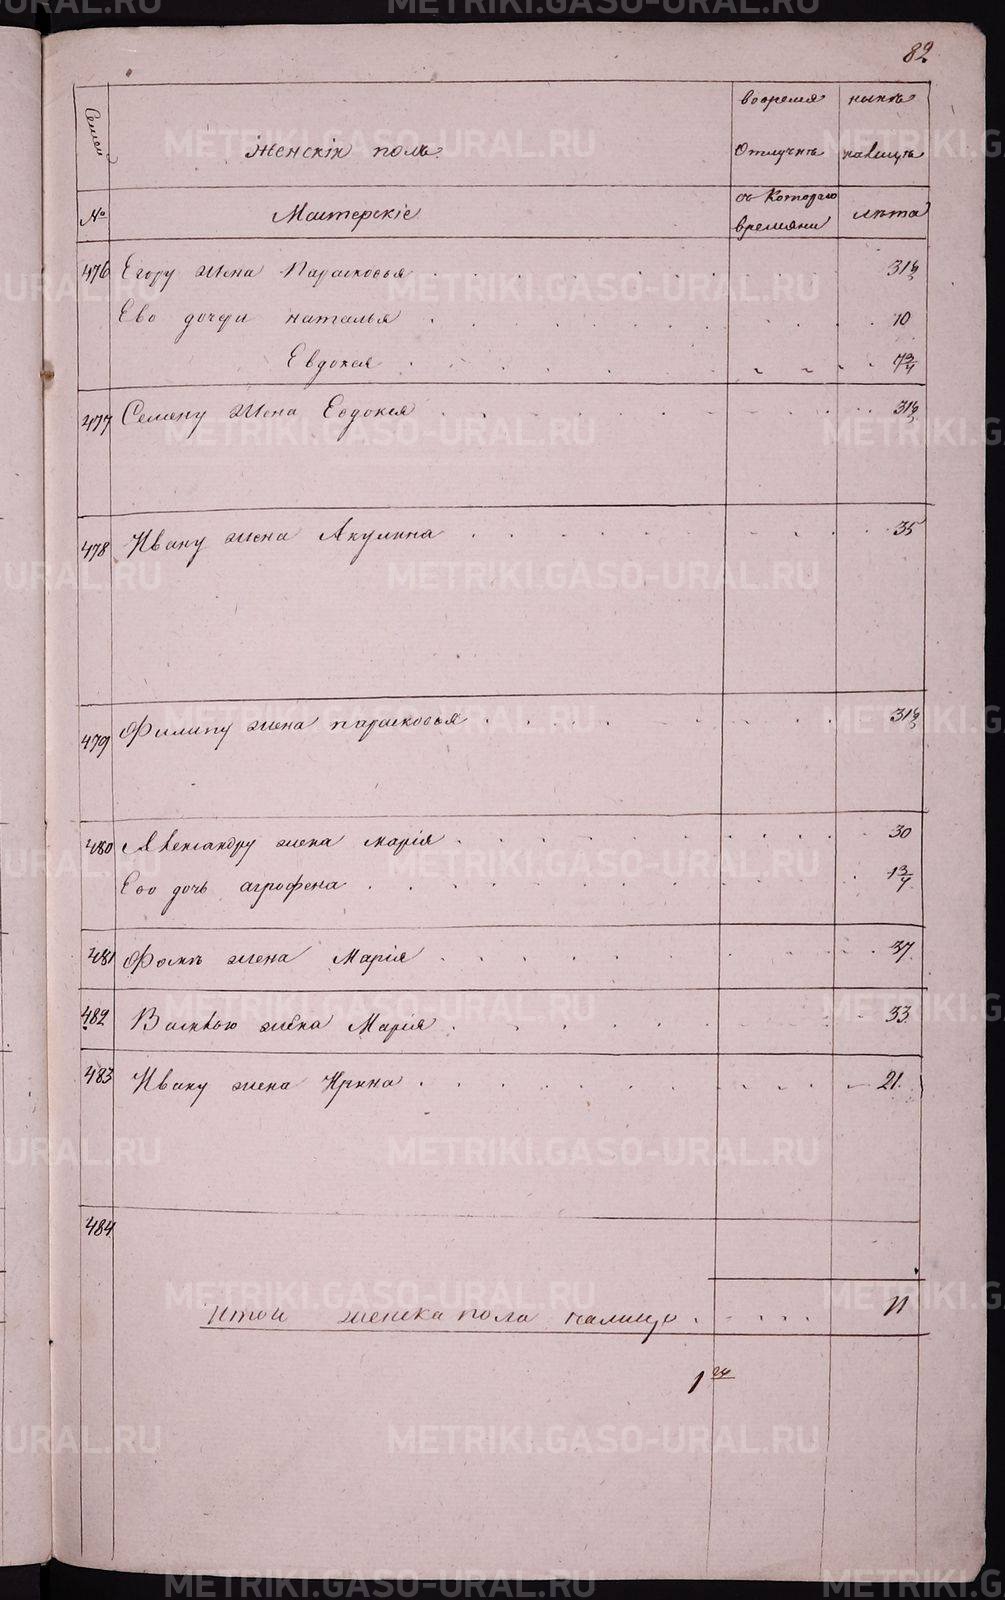 82
Семьи
Женскiй полъ
во времянной
Отлучкѣ
нынѣ
налицѣ
№
Мастерскiе
съ Котораго
времяни
лѣта
476 Егору жена Парасковья 31½
Ево дочери наталья 10
Евдокея 7 3/4
477 Семену жена Евдокея 31½
478 Ивану жена Акулина 35
479 Филипу жена парасковья 31½
480 Александру жена марiя 30
Ево дочь агрофена 1 3/4
481 Фомѣ жена Марiя 37
482 Василью жена Марiя 33
483 Ивану жена Ирина 21
484
Итого женска пола налицо 11
METRIKI.GASO-URAL.RU